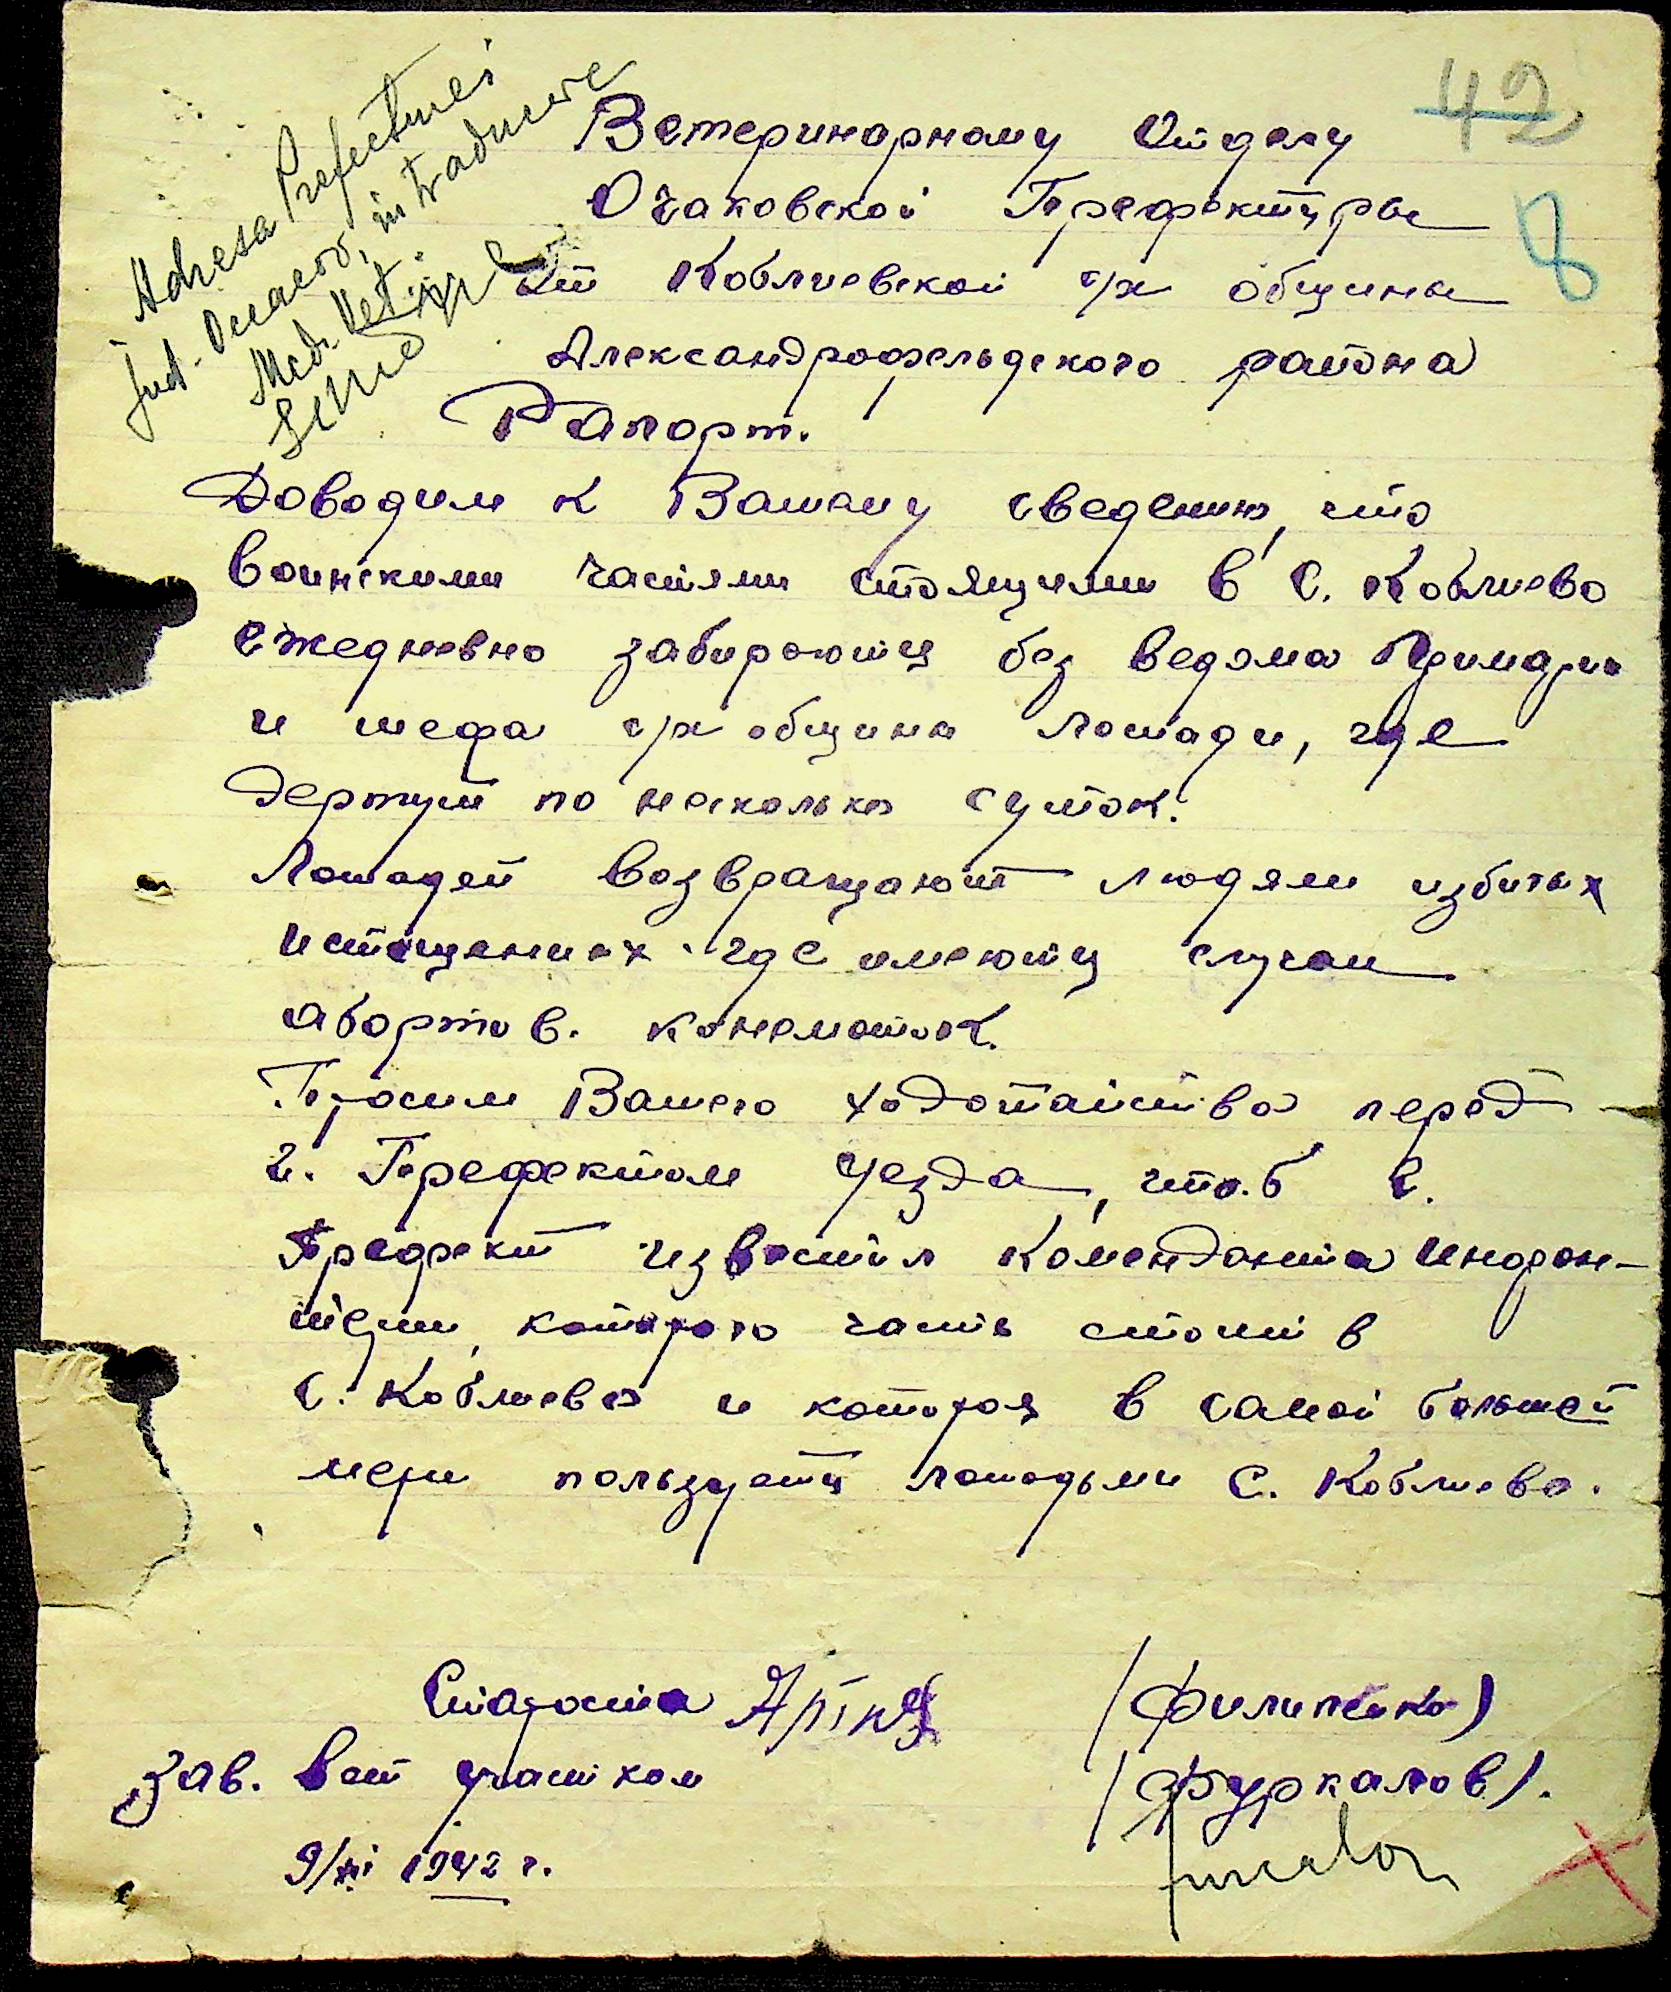 42
8
Adresa Prefecturei
Jud. Oceacov, in traducere
Med. Vet.
Ветеринарному Отделу
Очаковской Префектуры
От Коблиевской с/х общины
Александрофельдского района
Рапорт.
Доводим к Вашему сведению, что
воинскими частями стоящими в с. Коблиево
ежедневно забираютця без ведома Примарии
и шефа с/х общины лошади, где
держут по несколько суток.
Лошадей возвращают людям избитых
истощенных где имеютця случаи
абортов. конематок.
Просим Вашего ходотайства перед
г. Префектом уезда, что.б г.
Префект известил Коменданта Инфон-
терии, которого часть стоит в
с. Коблиево и которая в самой большей
мери пользуетця лошадьми с. Коблиево.
Староста (Филипенко)
Зав. Вет участком (Фуркалов).
9/XI 1942 г.